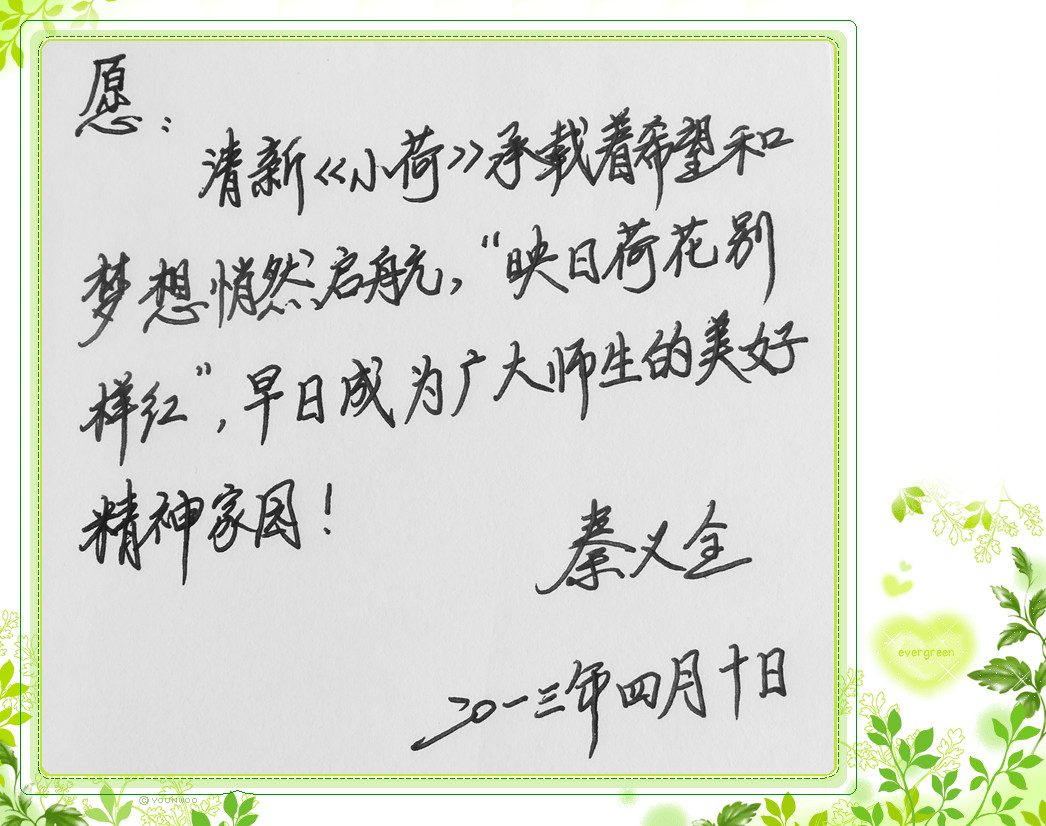 愿：
清新《小荷》承载着希望和
梦想悄然启航，“映日荷花别
样红”，早日成为广大师生的美好
精神家园！
秦义全
二〇一三年四月十日
evergreen
© YOUNWOO